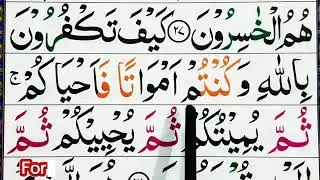 هُمُ الْخٰسِرُوْنَ ﴿۲۷﴾ كَيْفَ تَكْفُرُوْنَ
بِاللّٰهِ وَ كُنْتُمْ اَمْوَاتًا فَاَحْيَاكُمْ ۚ
ثُمَّ يُمِيْتُكُمْ ثُمَّ يُحْيِيْكُمْ ثُمَّ
For